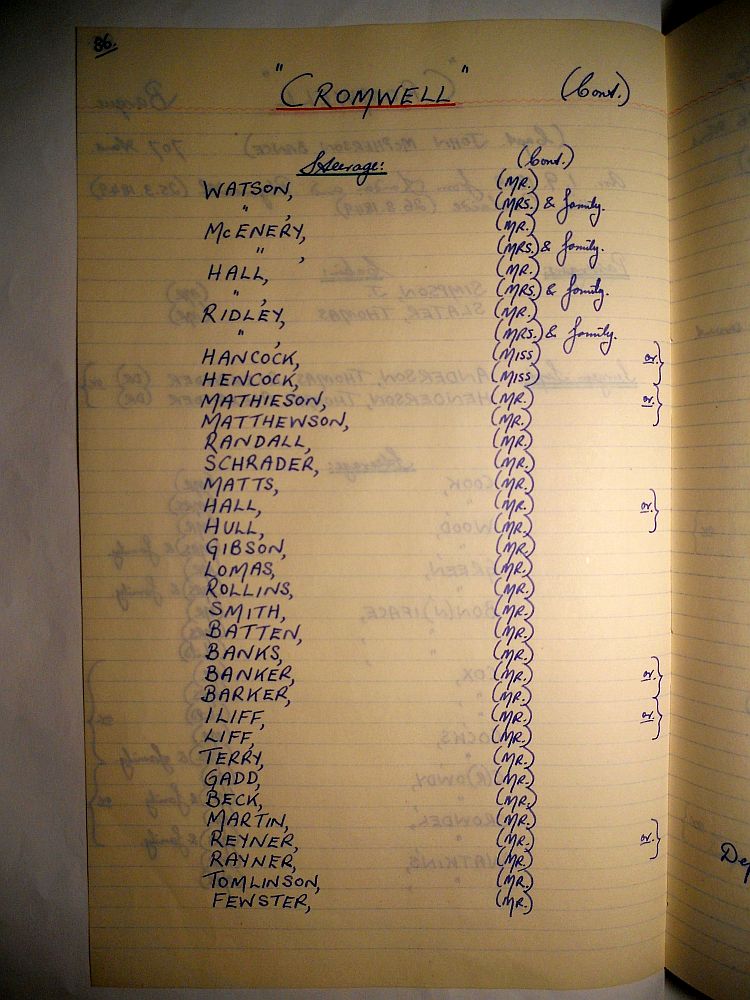 86.
"CROMWELL" (Cont.)
Steerage: (Cont.)
WATSON, (MR.)
" , (MRS.) & family.
McENERY, (MR.)
" , (MRS.) & family.
HALL, (MR.)
" , (MRS.) & family.
RIDLEY, (MR.)
" , (MRS.) & family.
HANCOCK, (MISS) or.}
HENCOCK, (MISS)
MATHIESON, (MR.) or.}
MATTHEWSON, (MR.)
RANDALL, (MR.)
SCHRADER, (MR.)
MATTS, (MR.)
HALL, (MR.) or.}
HULL, (MR.)
GIBSON, (MR.)
LOMAS, (MR.)
ROLLINS, (MR.)
SMITH, (MR.)
BATTEN, (MR.)
BANKS, (MR.)
BANKER, (MR.) or.}
BARKER, (MR.)
ILIFF, (MR.) or.}
LIFF, (MR.)
TERRY, (MR.)
GADD, (MR.)
BECK, (MR.)
MARTIN, (MR.)
REYNER, (MR.) or.}
RAYNER, (MR.)
TOMLINSON, (MR.)
FEWSTER, (MR.)
Dep